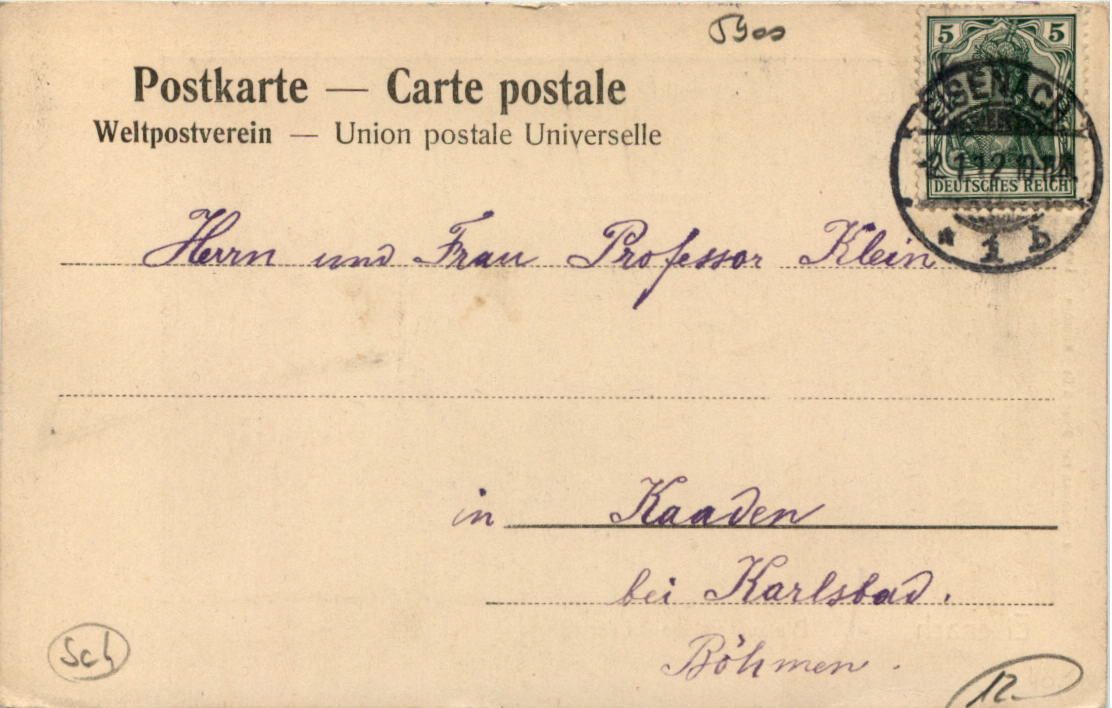 Postkarte — Carte postale
Weltpostverein — Union postale Universelle
5 5
DEUTSCHES REICH
EISENACH
-2.1.12.10-11
* 1 b
Herrn und Frau Professor Klein
in Kaaden
bei Karlsbad.
Böhmen.
Sch
12.-